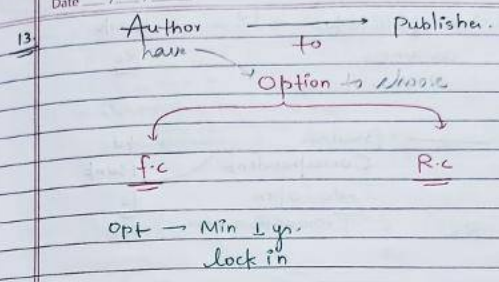 Date
13.
Author → Publisher.
to
have
Option to choose
f.c R.c
Opt → Min 1 yr.
lock in